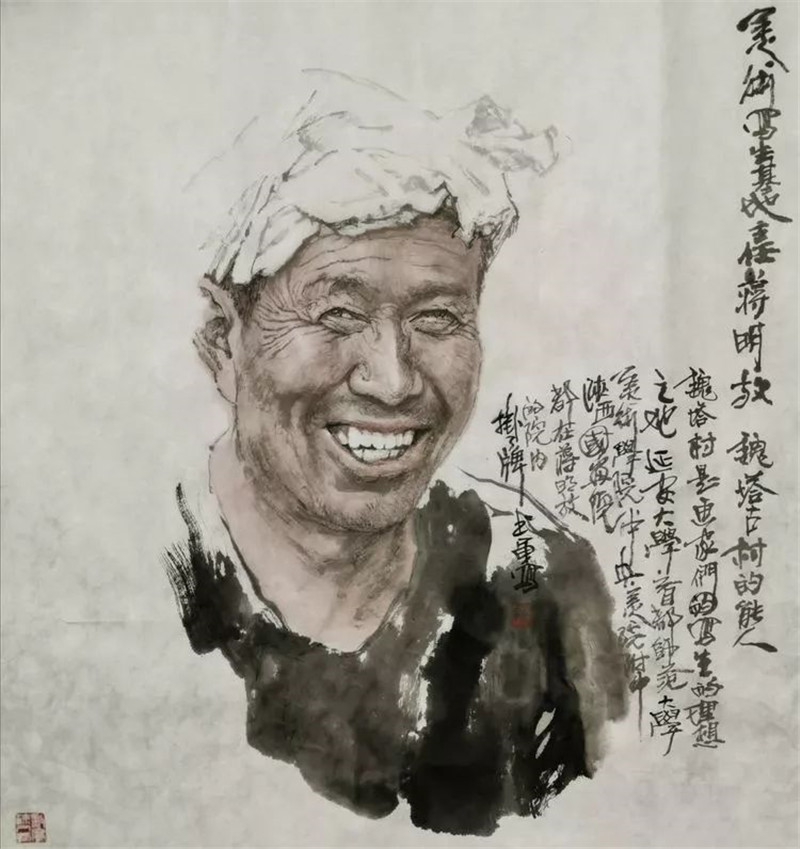 美術写生基地主任蔣明放 魏塔古村的能人
魏塔村是画家們的写生的理想
之地 延安大學.首都師范大學
美術學院.中央美院附中
陝西國畫院
都在蔣明放
的院内
掛牌